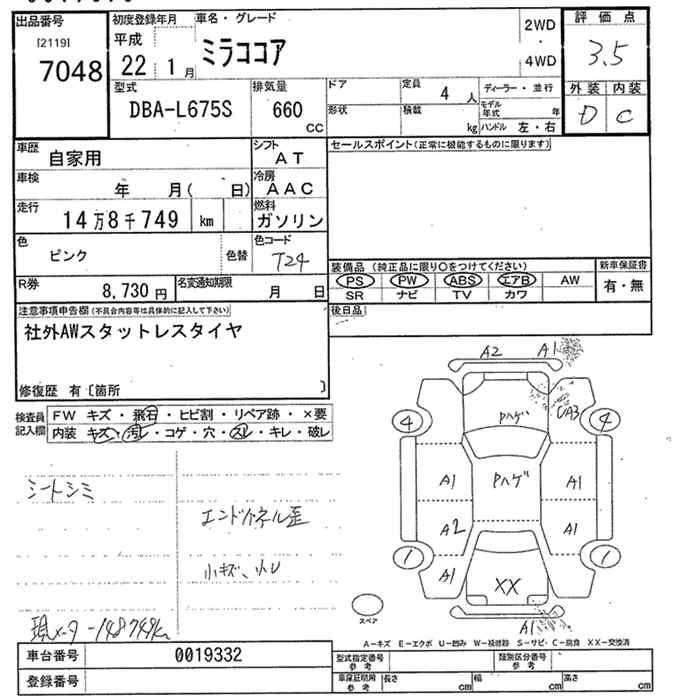 出品番号 初度登録年月 車名・グレード 評価点
[2119] 平成 2WD
7048 22 1月 ミラココア ・ 3.5
4WD
型式 排気量 ドア 定員 4人 ディーラー・並行 外装 内装
DBA-L675S 660 cc 形状 積載 kg モデル年式 年 D C
ハンドル 左・右
車歴 自家用 シフト AT セールスポイント(正常に機能するものに限ります)
車検 年 月( 日) 冷房 AAC
走行 14万8千749 km 燃料 ガソリン
色 ピンク 色替 色コード T24
装備品 (純正品に限り○をつけてください) 新車保証書
R券 8,730円 名変通知期限 月 日 PS PW ABS エアB AW 有・無
SR ナビ TV カワ
注意事項申告欄 (不具合内容等は具体的に記入して下さい) 後日品
社外AWスタットレスタイヤ
修復歴 有〔箇所 〕
検査員記入欄 FW キズ・飛石・ヒビ割・リペア跡・×要
内装 キズ・汚レ・コゲ・穴・スレ・キレ・破レ
A2 A1
4 Pハゲ UA3 4
シートシミ A1 Pハゲ A1
エンドパネル歪 A2 A1
小キズ、凹 1 A1 XX 1
スペア A1
現メーター148749km
A-キズ E-エクボ U-凹み W-補修跡 S-サビ C-腐食 XX-交換済
車台番号 0019332 型式指定番号 参考 類別区分番号 参考
登録番号 車庫証明用 参考 長さ cm 幅 cm 高さ cm